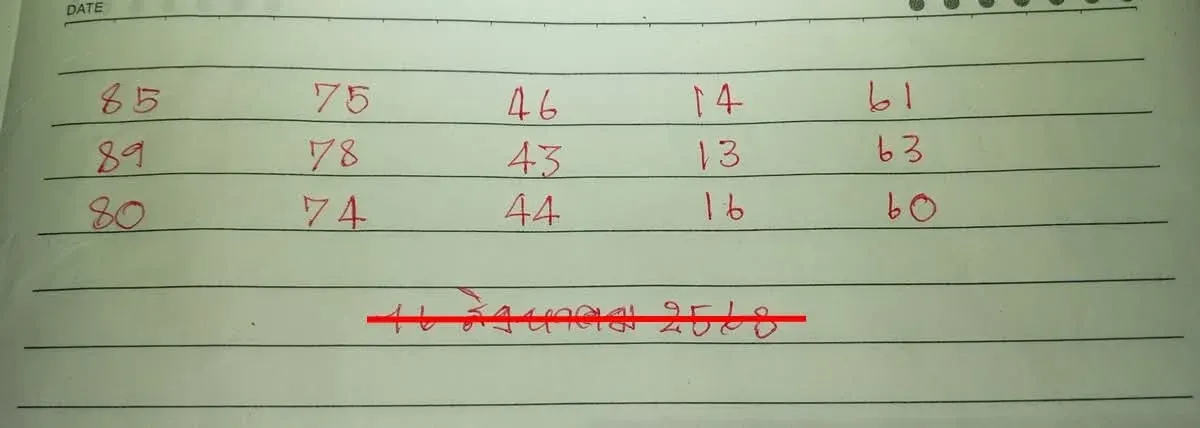 DATE
85 75 46 14 61
89 78 43 13 63
80 74 44 16 60
16 2568